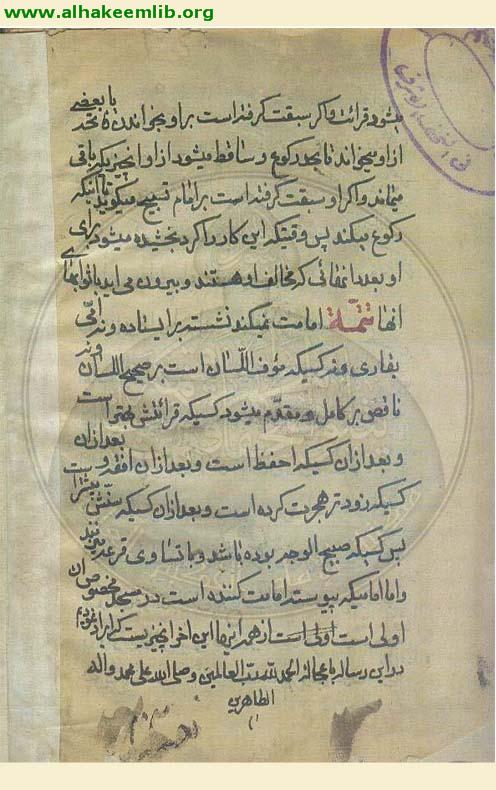 www.alhakeemlib.org
میشود قرائت و اگر سبقت گرفته است بر او بخواندن تا بعضی
از او میخواند تا بحد رکوع و ساقط میشود از او آنچیزیکه باقی
میماند و اگر او سبقت گرفته است بر امام تسبیح میگوید تا آنکه
رکوع میکند پس وقتیکه این کار را کرد بخشیده میشود برای
او بعدد انفاسی که مخالف او هستند و بیرون می آید با ثوابهای
آنها تتمة امامت نمیکند نشسته بر ایستاده و نه امّی
بقاری و نه کسیکه مؤف اللسان است بر صحیح اللسان و نه
ناقص بر کامل و مقدّم میشود کسیکه قرائتش بهتر است
و بعد از آن کسیکه احفظ است و بعد از آن افقه و بعد از آن
کسیکه زودتر هجرت کرده است و بعد از آن کسیکه سنّش بیشتر است
پس کسیکه صبیح الوجه بوده باشد و با تساوی قرعه میزنند
و اما امامیکه پیوسته امامت کننده است در مسجد مخصوص آن
اولی است از همه اینها این آخر آنچیزیست که ایراد نمودیم
در این رساله با عجاله الحمد لله رب العالمین و صلی الله علی محمد و آله
الطاهرین